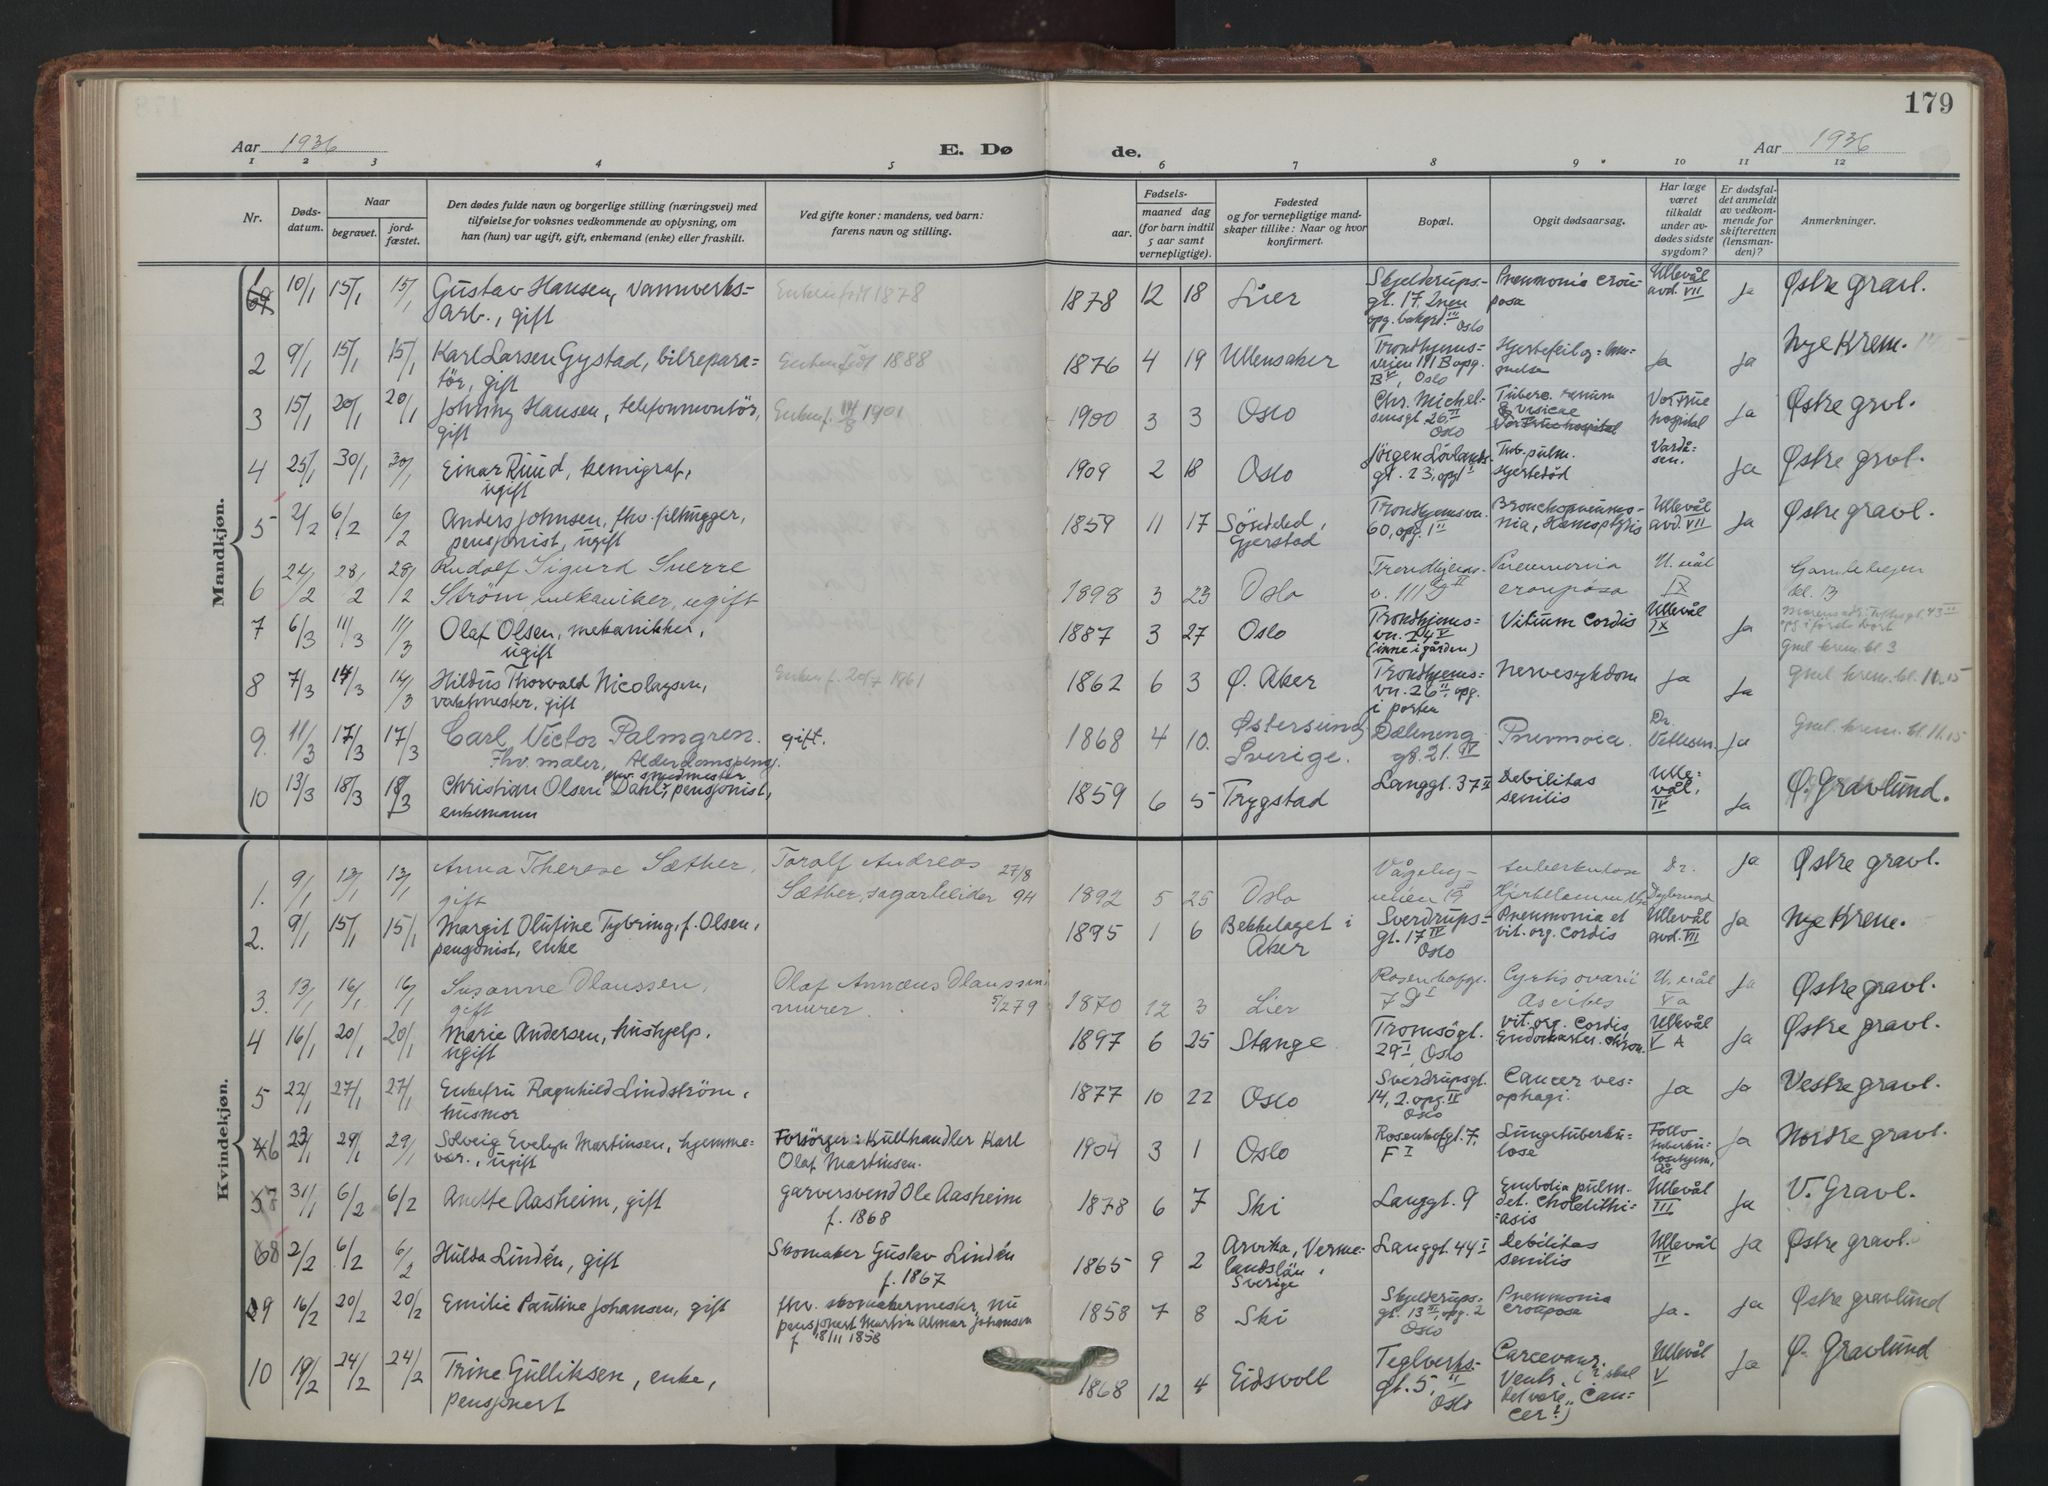 179
Aar 1936
E. Dø
de.
Aar 1936
1 2 3 4 5 6 7 8 9 10 11 12
Nr.
Døds-
datum.
Naar
begravet.
jord-
fæstet.
Den dødes fulde navn og borgerlige stilling (næringsvei) med
tilføielse for voksnes vedkommende av oplysning, om
han (hun) var ugift, gift, enkemand (enke) eller fraskilt.
Ved gifte koner: mandens, ved barn:
farens navn og stilling.
Fødsels-
aar.
maaned dag
(for barn indtil
5 aar samt
vernepligtige).
Fødested
og for vernepligtige mand-
skaper tillike: Naar og hvor
konfirmert.
Bopæl.
Opgit dødsaarsag.
Har læge
været
tilkaldt
under av-
dødes sidste
sygdom?
Er dødsfal-
det anmeldt
av vedkom-
mende for
skifteretten
(lensman-
den)?
Anmerkninger.
Mandkjøn.
1 10/1 15/1 15/1 Gustav Hansen, vannverks-
arb., gift
Enken født 1878
1878 12 18 Lier
Skjelderups-
gt. 17, 2nen
opg. bakgrd. III
Oslo
Pneumonia crou-
posa
Ullevål
avd. VII
Ja
Østre gravl.
2 9/1 15/1 15/1 Karl Larsen Gystad, bilrepara-
tør, gift
Enken født 1888
1876 4 19 Ullensaker
Trondhjems-
veien 111 B opg.
B V, Oslo
Hjertefeil og
Ja Ja
Nye Krem.
3 15/1 20/1 20/1 Johnny Hansen, telefonmontör,
gift
Enken f. 14/8 1901
1900 3 3 Oslo
Chr. Michel-
sensgt. 26 II
Oslo
Tuberc. renum
& vesicae
Vor Frue hospital
Vor Frue
hospital
Ja
Østre grvl.
4 25/1 30/1 30/1 Einar Ruud, kemigraf,
ugift
1909 2 18 Oslo
Jörgen Lövlands-
gt. 23, opg. I
Tub. pulm.
Hjertedöd
Vardå-
sen.
Ja
Østre grvl.
5 2/2 6/2 6/2 Anders Johnsen, fhv. filhugger,
pensjonist, ugift
1859 11 17 Söndeled,
Gjerstad
Trondhjemsvn.
60, opg. 1 II
Bronchopneumo-
nia, Hæmoptysis
Ullevål
avd. VII
Ja
Østre gravl.
6 24/2 28/2 28/2 Rudolf Sigurd Sverre
Strøm, mekaniker, ugift
1898 3 23 Oslo
Trondhjems-
v. 111 G II
Pneumonia
crouposa
U. vål
IX
Gamle
kl. 13
7 6/3 11/3 11/3 Olaf Olsen, mekanikker,
ugift
1887 3 27 Oslo
Trondhjems-
vn. 24 V
(inne i gården)
Vitium Cordis
Ullevål
IX
Ja
Gml krem. kl. 3
8 7/3 14/3 14/3 Hildus Thorvald Nicolaysen,
vaktmester, gift
Enken f. 20/7 1961
1862 6 3 Ø. Aker
Trondhjems-
vn. 26 II, opg.
i porten
Nervesykdom
Ja Ja
Gml. krem. kl. 11.15
9. 11/3 17/3 17/3 Carl Victor Palmgren.
Fhv. maler, Alderdomspensj.
gift.
1868 4 10. Østersund
Sverige.
Dælineng
gt. 21. IV
Pnevmoia.
Dr.
Vetlesen.
Ja
Gml. krem. kl. 11.15
10 13/3 18/3 18/3 Christian Olsen Dahl, fhv. smedmester, pensjonist,
enkemann
1859 6 5 Trygstad
Langgt. 37 II
Debilitas
senilis
Ulle-
vål,
IV
Ja
Ø. Gravlund.
Kvindekjøn.
1. 9/1 13/1 13/1 Anna Therese Sæther,
gift
Toralf Andreas
Sæther, sagarbeider 27/8 94
1892 5 25 Oslo
tuberkulose
Dr.
Ja
Østre gravl.
2. 9/1 15/1 15/1 Margit Olufine Tybring, f. Olsen,
pensjonist, enke
1895 1 6 Bekkelaget i
Aker
Sverdrups-
gt. 17 IV
Oslo
Pneumonia et
vit. org. cordis
Ullevål
avd. VII
Ja
Nye Krem.
3. 13/1 16/1 16/1 Susanne Olaussen,
gift
Olaf Annæus Olaussen
murer. 5/2 79
1870 12 3 Lier
Rosenhofgt.
7 D I
Cystis ovarii
Ascites
U. vål
V a
Ja
Østre gravl.
4 16/1 20/1 20/1 Marie Andersen, hushjelp,
ugift
1897 6 25 Stange
Tromsögt.
29 I Oslo
Vit. org. cordis
Endokardit. chron.
Ullevål
V A
Ja
Østre gravl.
5 22/1 27/1 27/1 Enkefru Ragnhild Lindström,
husmor
1877 10 22 Oslo
Sverdrupsgt.
14, 2. opg. II
Oslo
Cancer oes-
ophagi.
Ja Ja
Vestre gravl.
6 23/1 29/1 29/1 Solveig Evelyn Martinsen, hjemme-
vær., ugift
Forsörger: Kullhandler Karl
Olaf Martinsen.
1904 3 1 Oslo
Rosenhofgt. 7,
F I
Lungetuberku-
lose
Follo
tuberku-
losehjem,
Ås
Ja
Nordre gravl.
7 31/1 6/2 6/2 Anette Aasheim, gift
Garversvend Ole Aasheim
f. 1868
1878 6 7 Ski
Langgt. 9
Embolia pulm.
det. Cholelithi-
asis
Ullevål
III
Ja
V. Gravl.
8 2/2 6/2 6/2 Hulda Lindén, gift
Skomaker Gustav Lindén
f. 1867
1865 9 2 Arvika, Verme-
landslän,
Sverige
Langgt. 44 I
Debilitas
senilis
Ullevål
IV
Ja
Østre gravl.
9 16/2 20/2 20/2 Emilie Pauline Johansen, gift
fhv. skomakermester, nu
pensjonert Martin Almar Johansen
f. 18/11 1858
1858 7 8 Ski
Skjelderups-
gt. 13 III, opg. 2
Oslo
Pneumonia
crouposa
Ja. Ja
Østre gravlund
10 19/2 24/2 24/2 Trine Gulliksen, enke,
pensjonert
1868 12 4 Eidsvoll
Teglverks-
gt. 5, II
Oslo
Ventr. (skal
det være "Can-
cer"?)
Ullevål
V
Ja
Ø. Gravlund